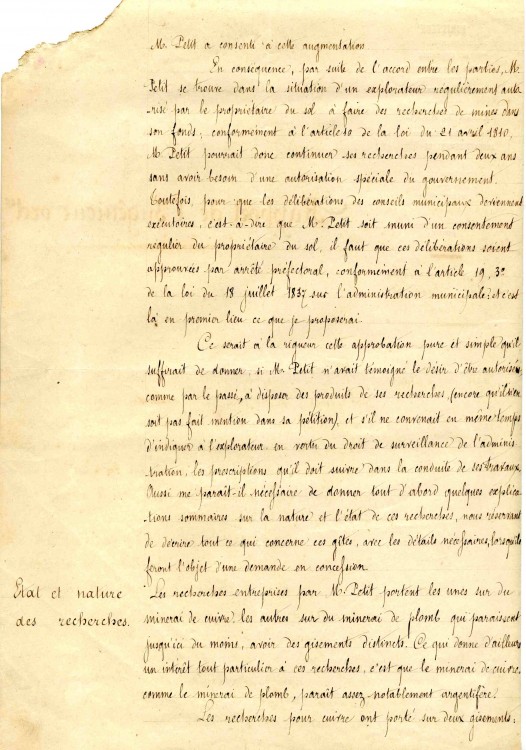 Mr. Petit a consenti à cette augmentation.
En conséquence, par suite de l'accord entre les parties, Mr.
Petit se trouve dans la situation d'un explorateur régulièrement auto-
-risé par le propriétaire du sol à faire des recherches de mines dans
son fonds, conformément à l'article 10 de la loi du 21 avril 1810.
Mr Petit pourrait donc continuer ses recherches pendant deux ans
sans avoir besoin d'une autorisation spéciale du gouvernement.
Toutefois, pour que les délibérations des conseils municipaux deviennent
exécutoires, c'est-à-dire que Mr. Petit soit muni d'un consentement
régulier du propriétaire du sol, il faut que ces délibérations soient
approuvées par arrêté préfectoral, conformément à l'article 19, 3º
de la loi du 18 juillet 1837 sur l'administration municipale: et c'est
là en premier lieu ce que je proposerai.
Ce serait à la rigueur cette approbation pure et simple qu'il
suffirait de donner, si Mr. Petit n'avait témoigné le désir d'être autorisé,
comme par le passé, à disposer des produits de ses recherches, (encore qu'il n'en
soit pas fait mention dans sa pétition), et s'il ne convenait en même temps
d'indiquer à l'explorateur en vertu du droit de surveillance de l'adminis-
-tration, les prescriptions qu'il doit suivre dans la conduite de ses travaux.
Aussi me paraît-il nécessaire de donner tout d'abord quelques explica-
-tions sommaires sur la nature et l'état de ces recherches, nous réservant
de décrire tout ce qui concerne ces gîtes, avec les détails nécessaires, lorsqu'ils
feront l'objet d'une demande en concession.
Etat et nature
des recherches.
Les recherches entreprises par Mr. Petit portent les unes sur du
minerai de cuivre, les autres sur du minerai de plomb qui paraissent
jusqu'ici du moins, avoir des gisements distincts. Ce qui donne d'ailleurs
un intérêt tout particulier à ces recherches, c'est que le minerai de cuivre,
comme le minerai de plomb, paraît assez notablement argentifère.
Les recherches pour cuivre ont porté sur deux gisements: